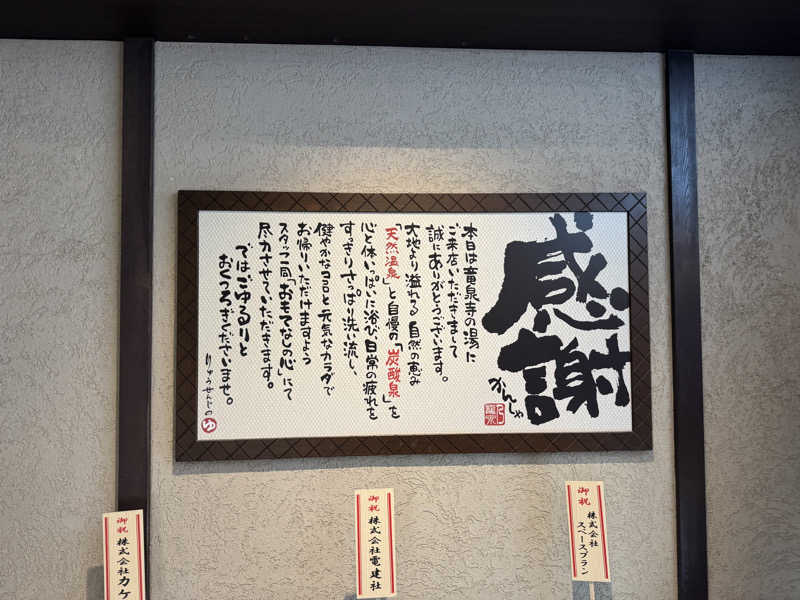 感謝
かんしゃ
本日は竜泉寺の湯に
ご来店いただきまして
誠にありがとうございます。
大地より溢れる自然の恵み
「天然温泉」と自慢の「炭酸泉」を
心と体いっぱいに浴び日常の疲れを
すっきりさっぱり洗い流し、
健やかなココロと元気なカラダで
お帰りいただけますよう
スタッフ一同「おもてなしの心」にて
尽力させていただきます。
ではごゆるりと
おくつろぎくださいませ。
りゅうせんじの
ゆ
御祝
株式会社
スペースプラン
御祝
株式会社電建社
御祝
株式会社カケ